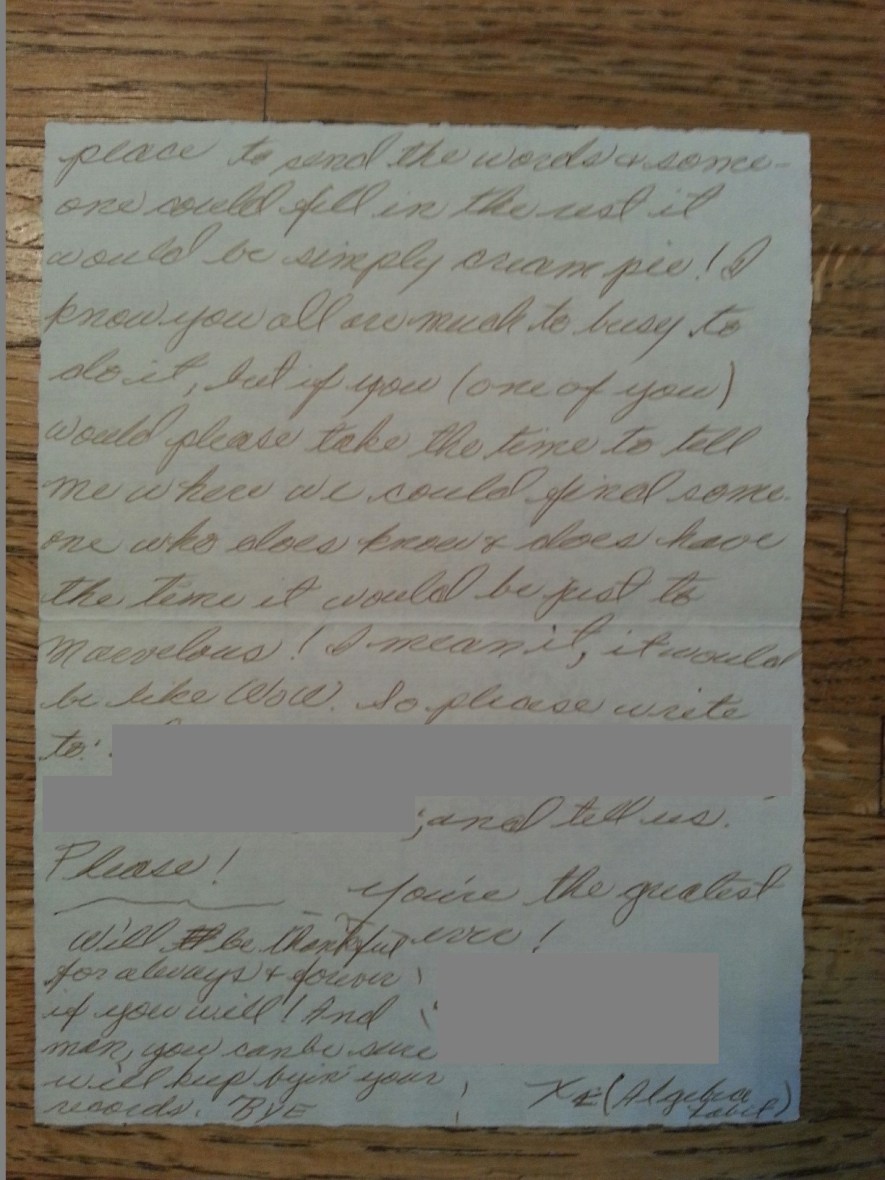 place to send the words & some-
one could fill in the rest it
would be simply cream pie! I
know you all are much to busy to
do it, but if you (one of you)
would please take the time to tell
me where we could find some-
one who does know & does have
the time it would be just to
marvelous! I mean it, it would
be like WOW. So please write
to:
; and tell us.
Please!
You're the greatest
ever!
Will be thankful
for always & forever
if you will! And
man, you can be sure
we'll keep buyin' your
records. BYE
(Algebra
Label)